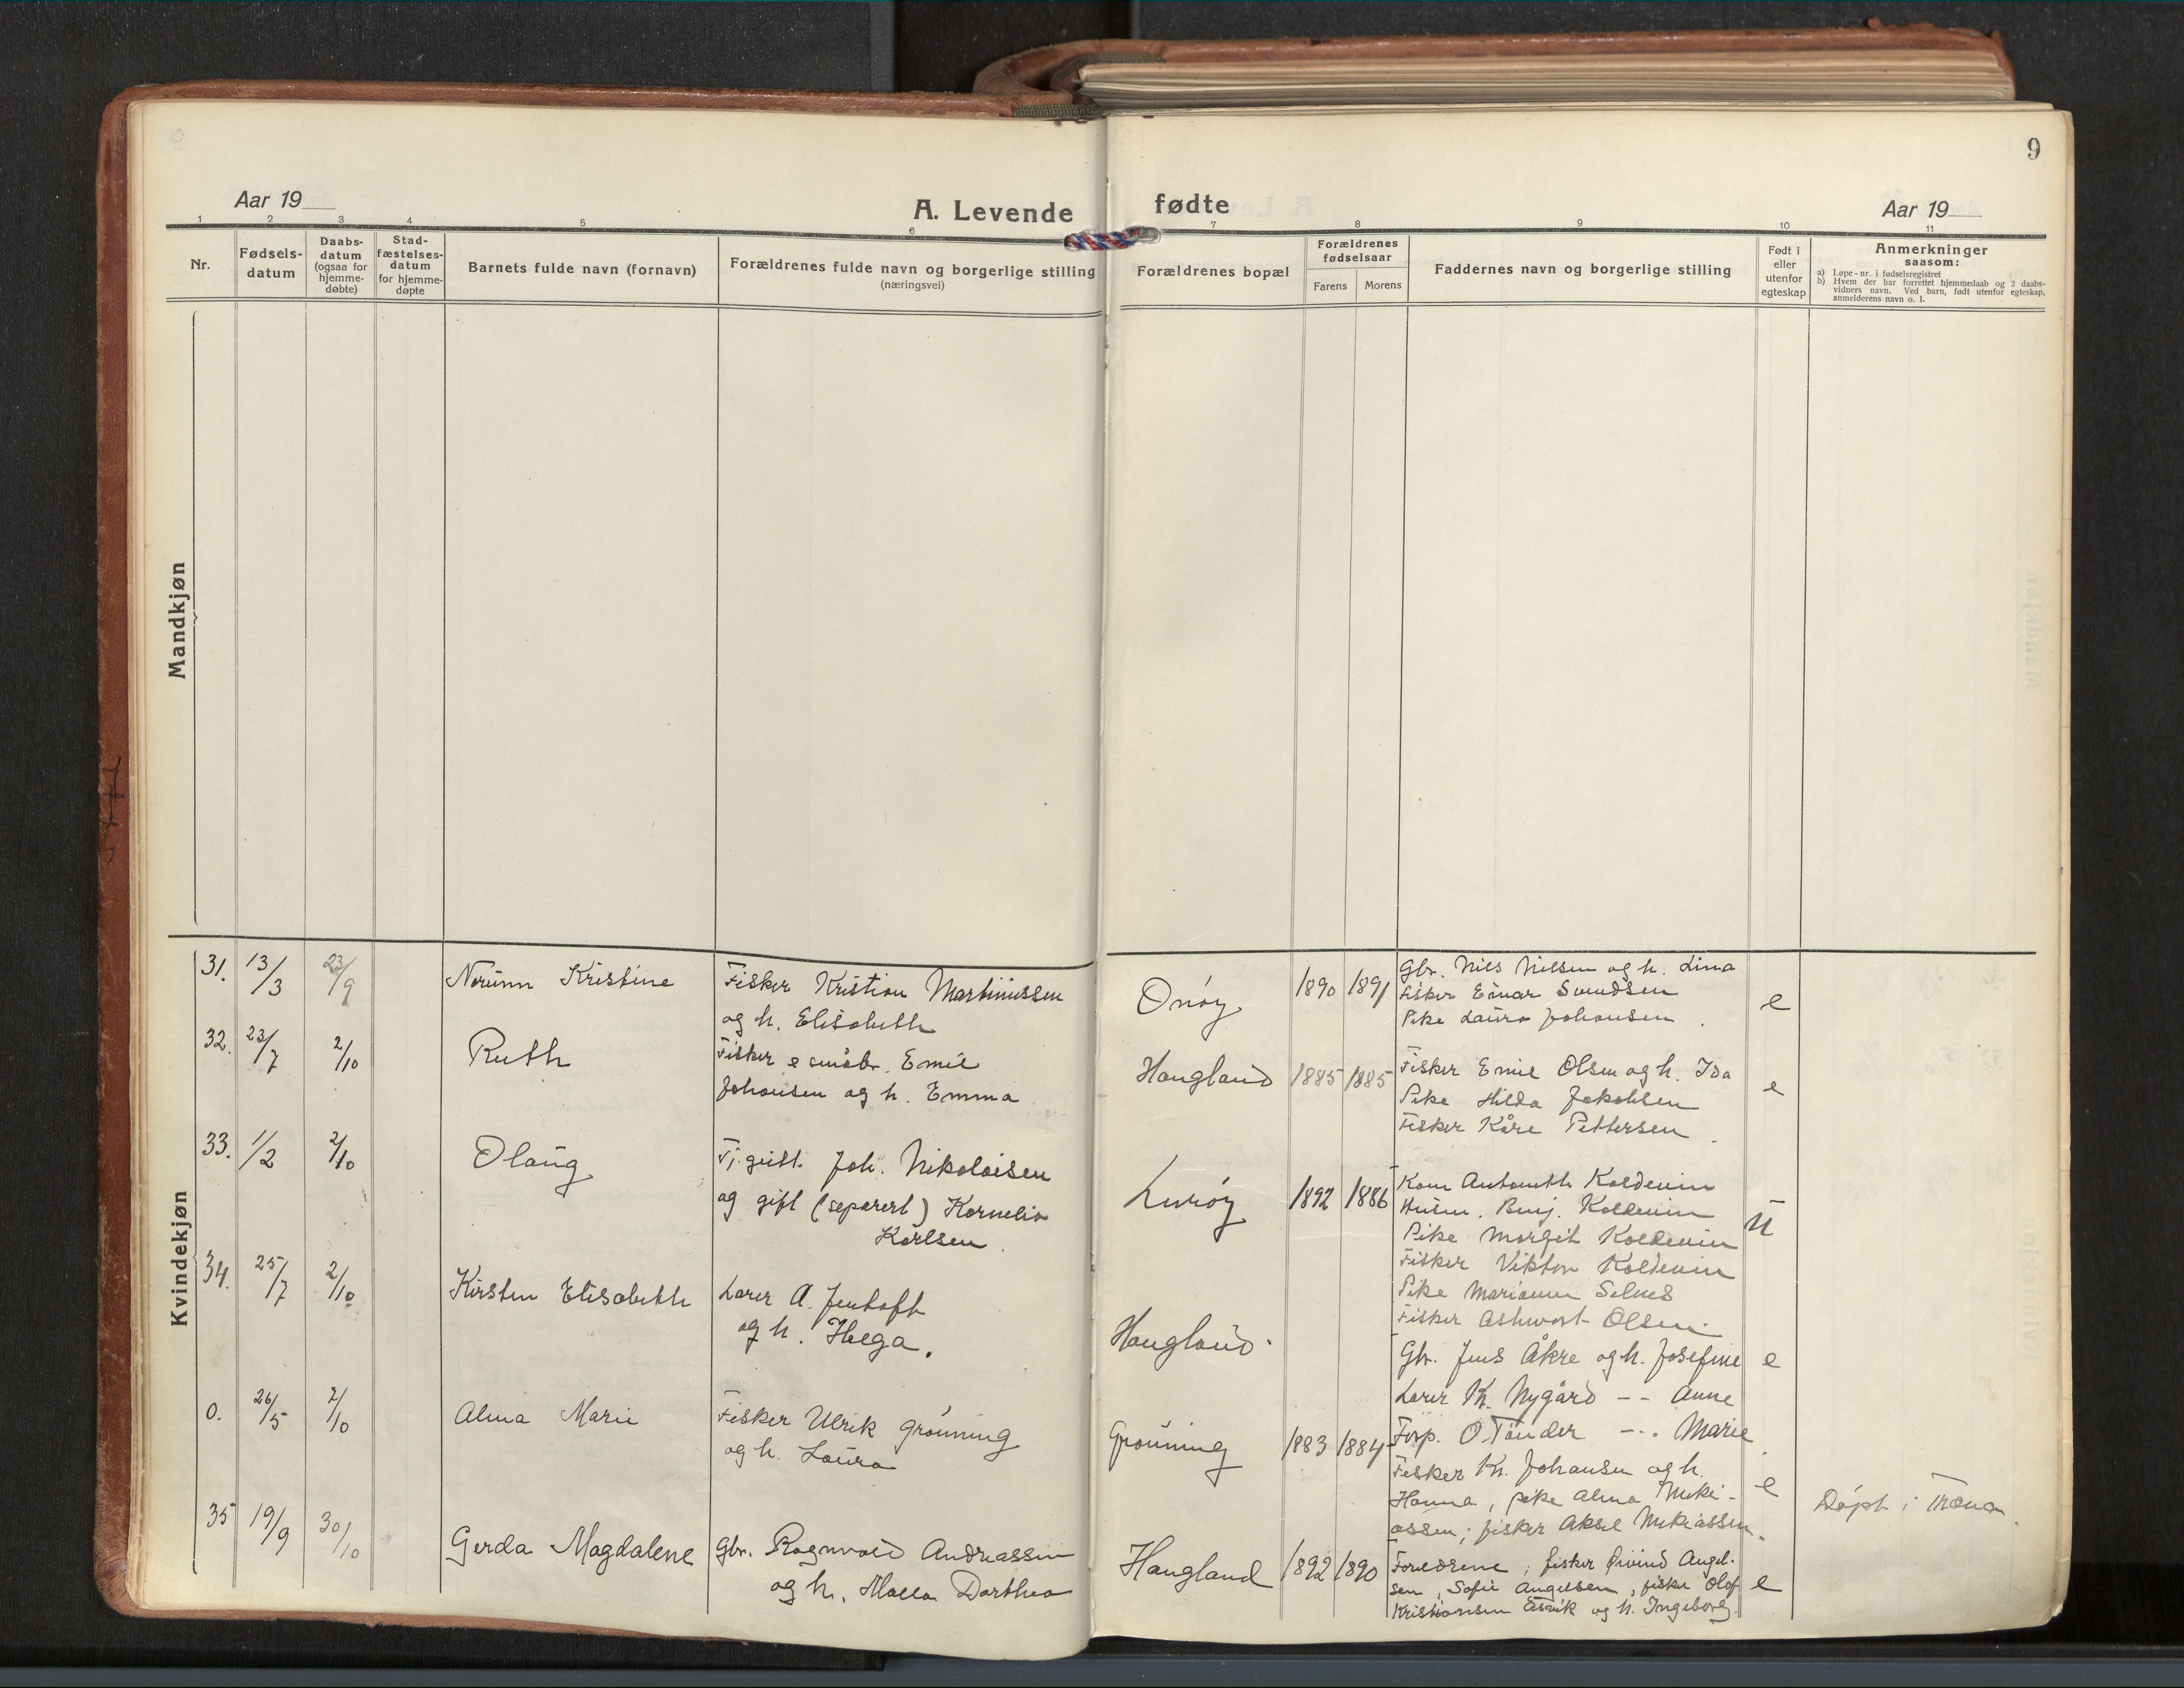 9
Aar 19
A. Levende fødte
Aar 19
1 2 3 4 5 6 7 8 9 10 11
Nr.
Fødsels-
datum
Daabs-
datum
(ogsaa for
hjemme-
døbte)
Stad-
fæstelses-
datum
for hjemme-
døpte
Barnets fulde navn (fornavn)
Forældrenes fulde navn og borgerlige stilling
(næringsvei)
Forældrenes bopæl
Forældrenes
fødselsaar
Farens Morens
Faddernes navn og borgerlige stilling
Født i
eller
utenfor
egteskap
Anmerkninger
saasom:
a) Løpe-nr. i fødselsregistret
b) Hvem der har forrettet hjemmedaab og 2 daabs-
vidners navn. Ved barn, født utenfor egteskap,
anmelderens navn o. l.
Mandkjøn
Kvindekjøn
31. 13/3 23/9 Norunn Kristine
Fisker Kristian Martinussen
og h. Elisabeth
Onøy 1890 1891
Gbr. Nils Nilsen og h. Lina
Fisker Einar Svendsen
Pike Laura Johansen.
e
32. 23/7 2/10 Ruth
Fisker & småbr. Emil
Johansen og h. Emma
Haugland 1885 1885
Fisker Emil Olsen og h. Ida
Pike Hilda Jakobsen
Fisker Kåre Pettersen.
e
33. 1/2 2/10 Olaug
Joh. Nikolaisen
og gift (separert) Kornelia
Karlsen.
Lurøy 1892 1886
Koldevin
Benj. Koldevin
Pike Margit Koldevin
Fisker Viktor Koldevin
Pike Marianne Selnes
Fisker Olsen.
u
34. 25/7 2/10 Kirsten Elisabeth
Lærer A. Jentoft
og h. Helga.
Haugland.
Gbr. Jens Åkre og h. Josefine
Lærer Kr. Nygård -- Anne
Forp. O. Tønder --. Marie
e
0. 26/5 2/10 Alma Marie
Fisker Ulrik Grønning
og h. Laura
Grønning 1883 1884
Fisker Kr. Johansen og h.
Hanna, pike Alma Meki-
assen; fisker Aksel Mekiassen.
e
Døpt i Træna.
35 19/9 30/10 Gerda Magdalene
Gbr. Ragnvald Andreassen
og h. Malla Dorthea
Haugland 1892 1890
Foreldrene, fisker Øivind Angel-
sen, Sofie Angelsen, fisker Olaf
Kristiansen Esvik og h. Ingeborg.
e